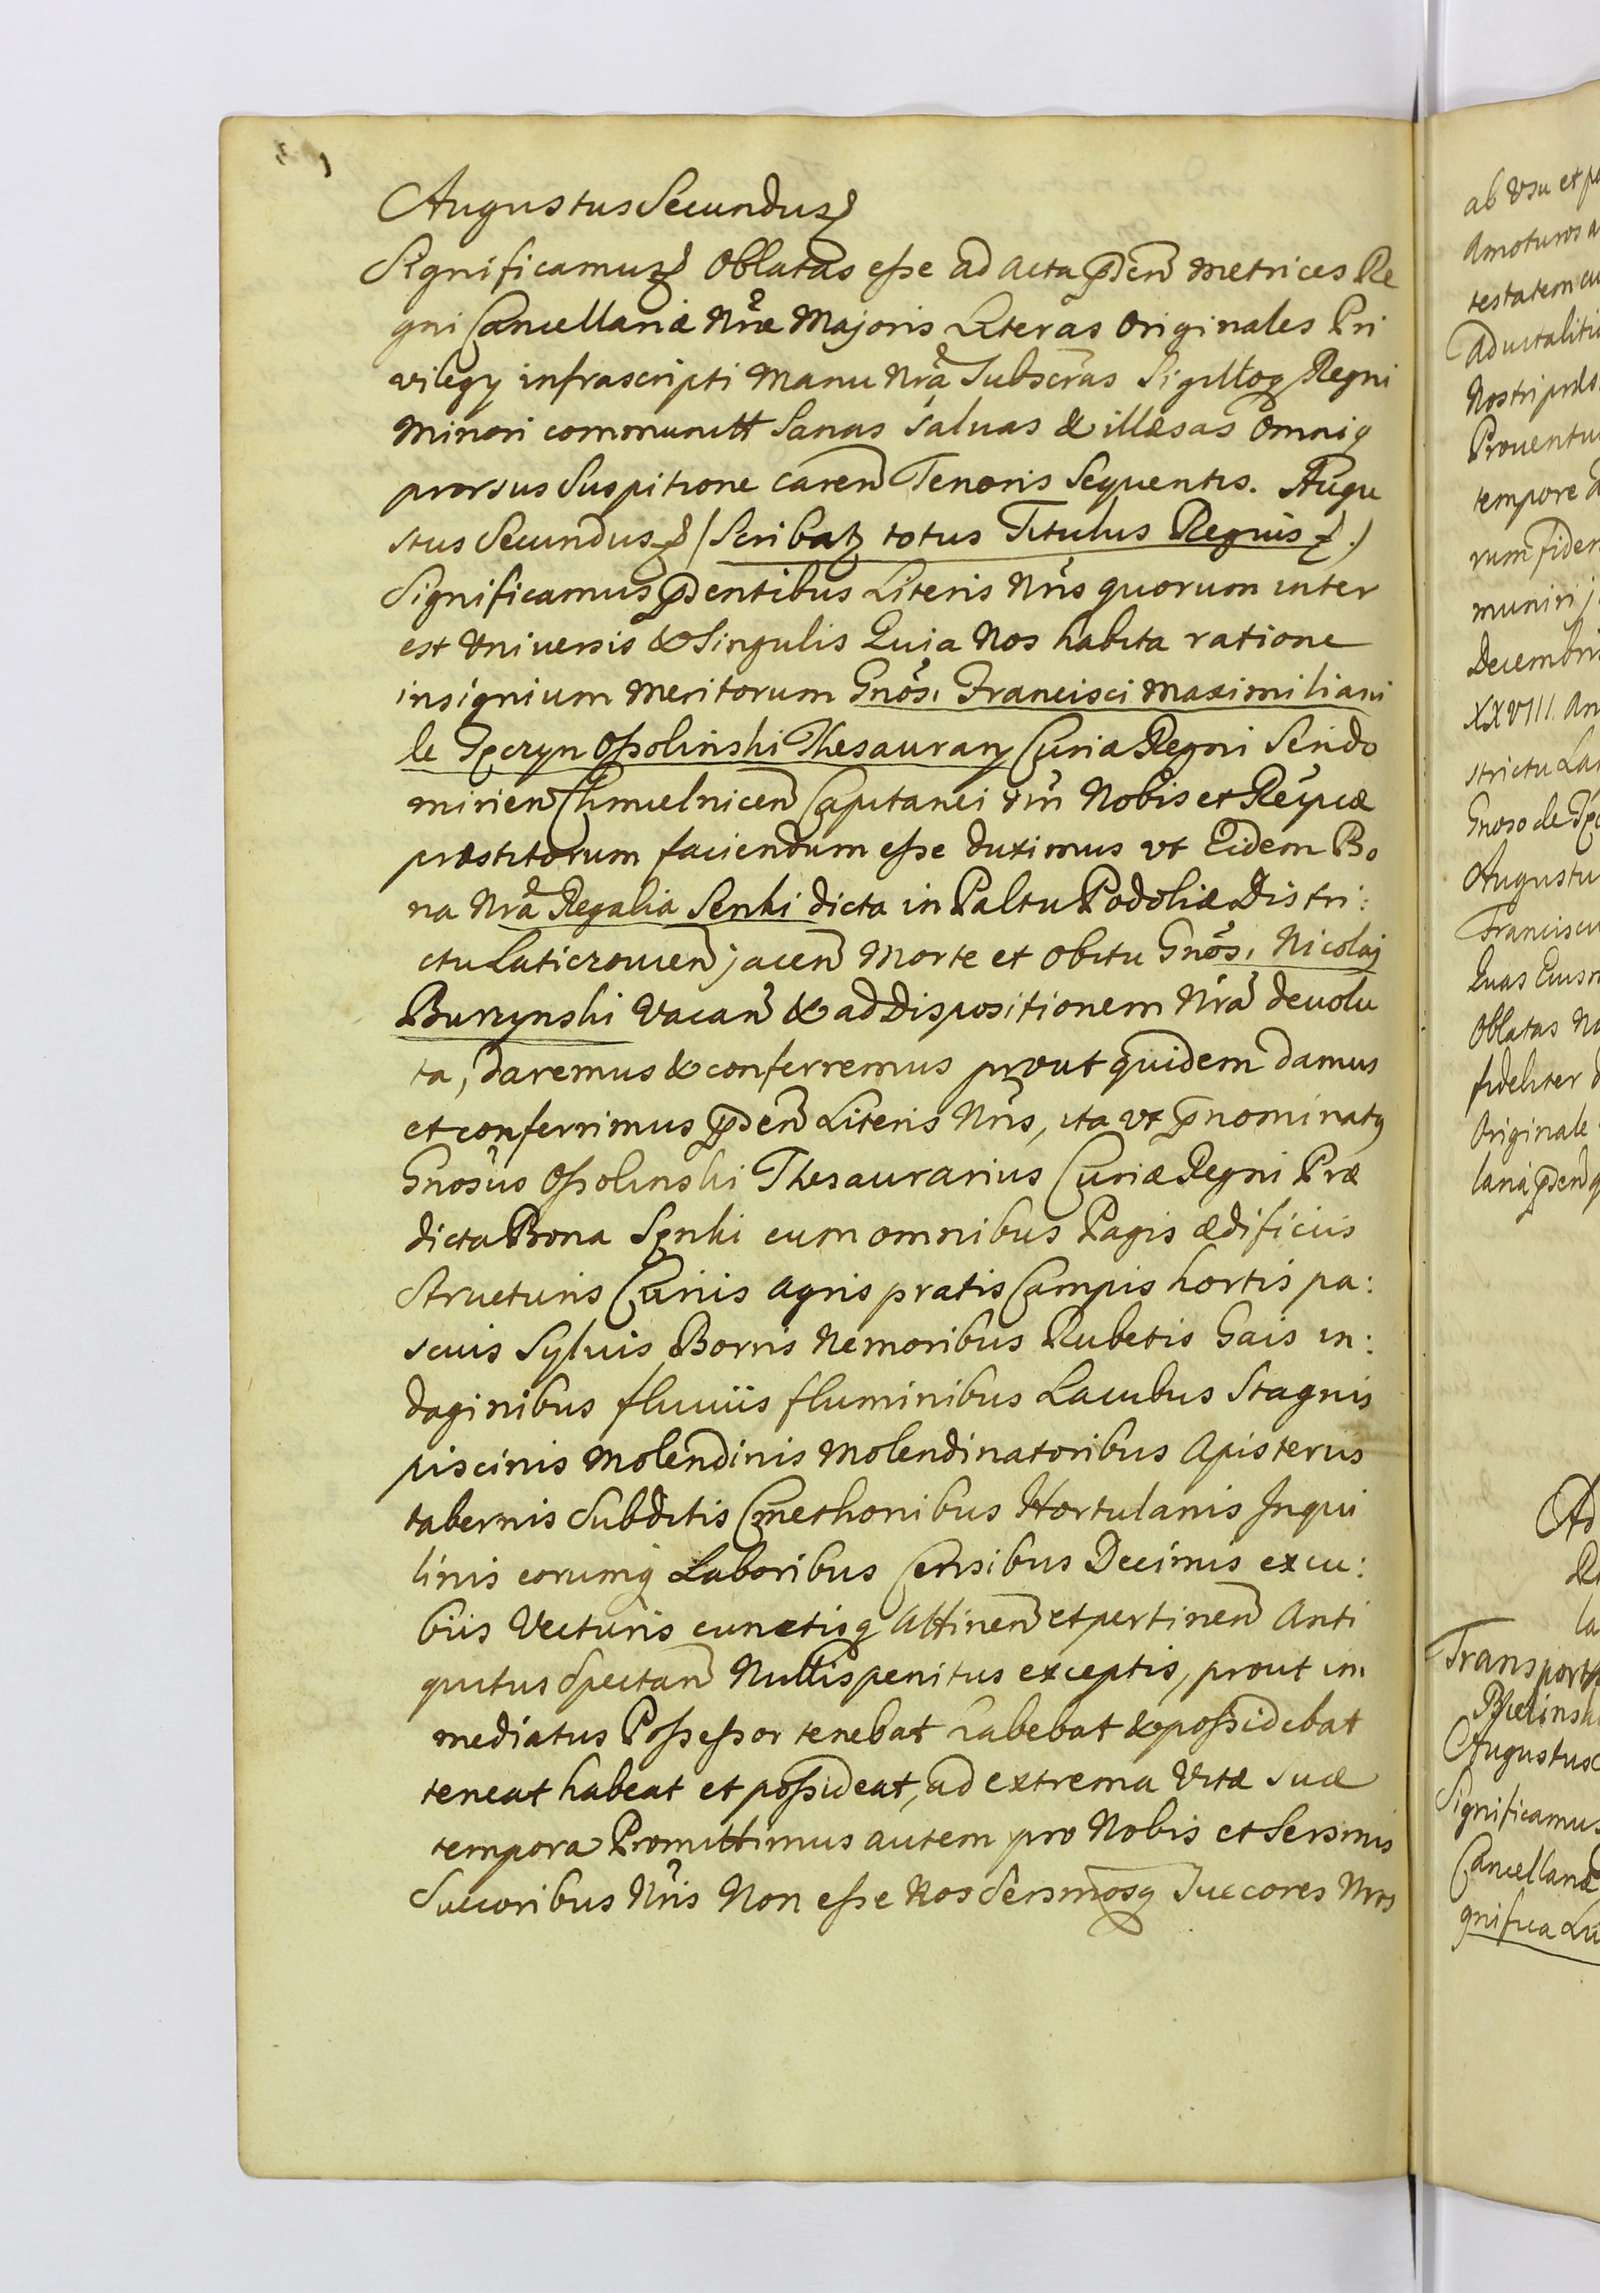 Augustus Secundus
Significamus Oblatas esse ad Acta p̃sen̄ Metrices Re
gni Cancellariæ Nr̃æ Majoris Literas Originales Pri
vilegy infrascripti Manu Nr̃a Subscr̃as Sigilloq Regni
Minori communitt Sanas Saluas & illæsas Omniq
prorsus Suspitione Caren̄ Tenoris Sequentis. Augu
stus Secundus (Scribatz totus Titulus Regius .)
Significamus p̃sentibus Literis Nr̃is quorum inter
est Universis & Singulis Quia Nos habita ratione
insignium Meritorum Gnõsi Francisci Maximiliani
le Tęczyn Ossolinski Thesaurary Curia Regni Sendo
mirien̄ Chmielnicen̄ Capitanei
Nobis et Reipcæ
præstitorum faciendum esse duximus vt Eidem Bo
na Nr̃a Regalia Senki dicta in Paltu Podoliæ Distri:
ctu Laticzouien̄ jacen̄ Morte et Obitu Gnõsi Nicolaj
Burzynski Vacan̄ & ad Dispositionem Nr̃a deuolu
ta, daremus & conferremus prout quidem damus
et conferrimus p̃sen̄ Literis Nr̃is, ita vt p̃nominatq
Gnõsus Ossolinski Thesaurarius Curiæ Regni Præ
dicta Bona Sęnki cum omnibus Pagis ædificiis
Structuris Curiis Agris pratis Campis hortis pa:
scuis Syluis Borris Nemoribus Rubetis Gais in:
daginibus fluuiis fluminibus Lacubus Stagnis
piscinis Molendinis Molendinatoribus Apisterus
tabernis Subditis Cmethonibus Hortulanis Inqui
linis eorumq Laboribus Censibus Decimis excu:
biis Vecturis cunctisq Attinen̄ et pertinen̄ Anti
quitus Spectan̄ Nullis penitus exceptis, prout im
mediatus Possessor tenebat habebat & possidebat
teneat habeat et possideat, ad extrema Vitæ suæ
tempora Promittimus autem pro Nobis et Sersmis
Succoribus Nr̃is Non esse Nos Sersmosq Succores Nros
ab Vsu et po
Amoturos a
testatem cu
Ad vitaliti
Nostri
Prouentu
tempore a
rum fidem
muniri j
Decembris
XXVIII. An
strictu La
Gnoso de Tęc
Augustu
Franciscu
Quas Eius
Oblatas No
fideliter d
Originale
laria p̃sen̄ q
Ad
Re
la
Transport
Bielinsk
Augustus
Significamus
Cancellariæ
gnifica Lu